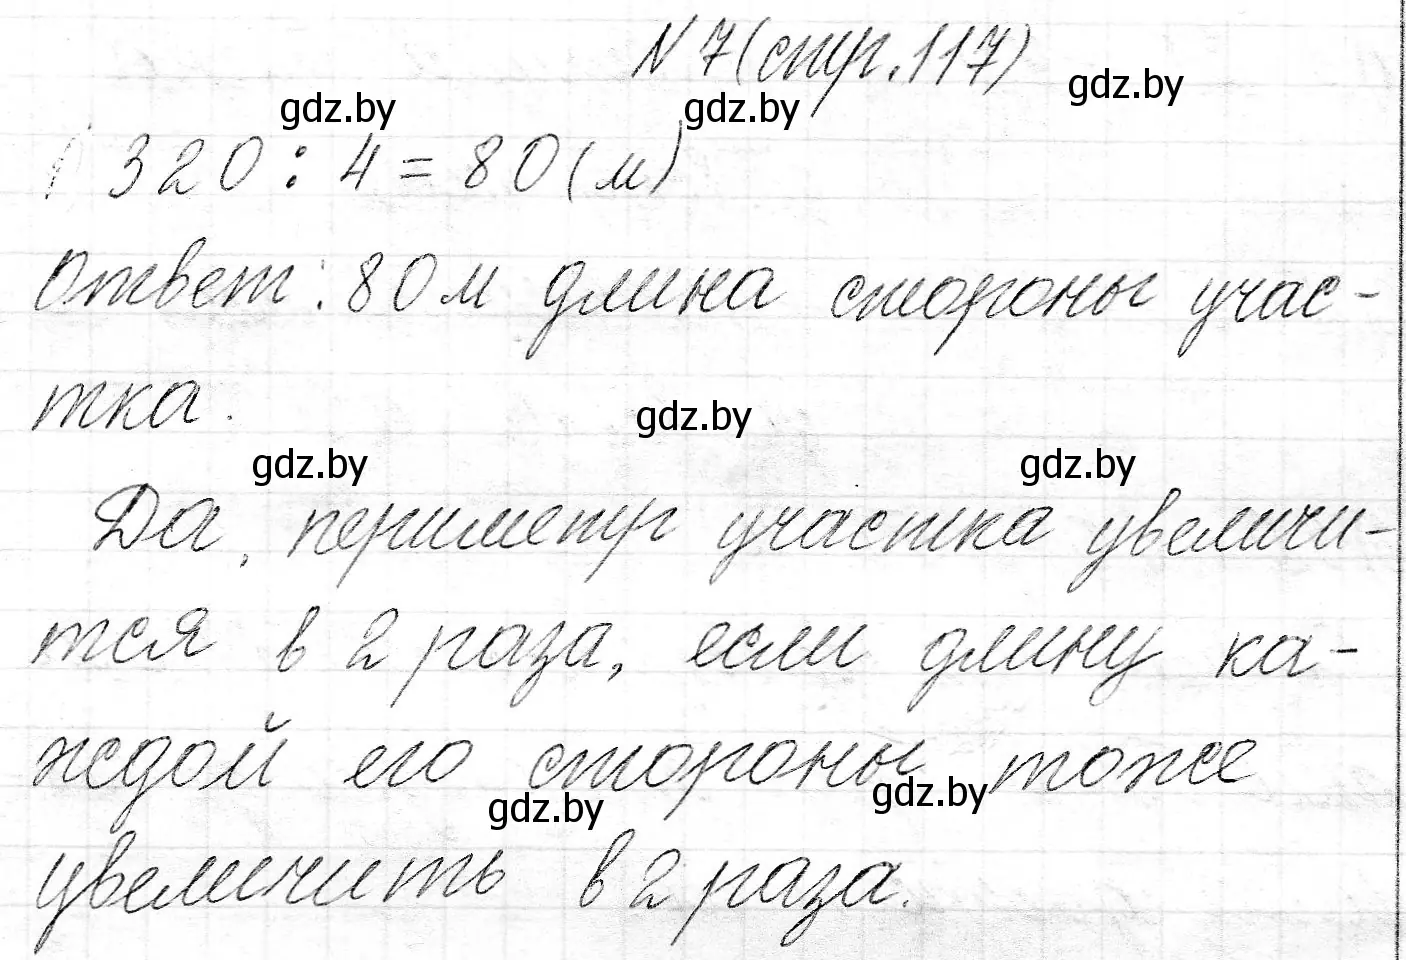 N 7 (стр. 117)
gdz.by gdz.by gdz.by
1) 320 : 4 = 80 (м)
Ответ: 80 м длина стороны учас-
тка.
gdz.by
gdz.by gdz.by
Да, периметр участка увеличи-
тся в 2 раза, если длину ка-
ждой его стороны тоже
gdz.by gdz.by
увеличить в 2 раза.